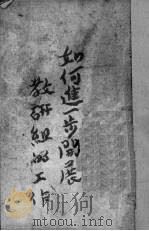 如何進一步開展
教研組的工作